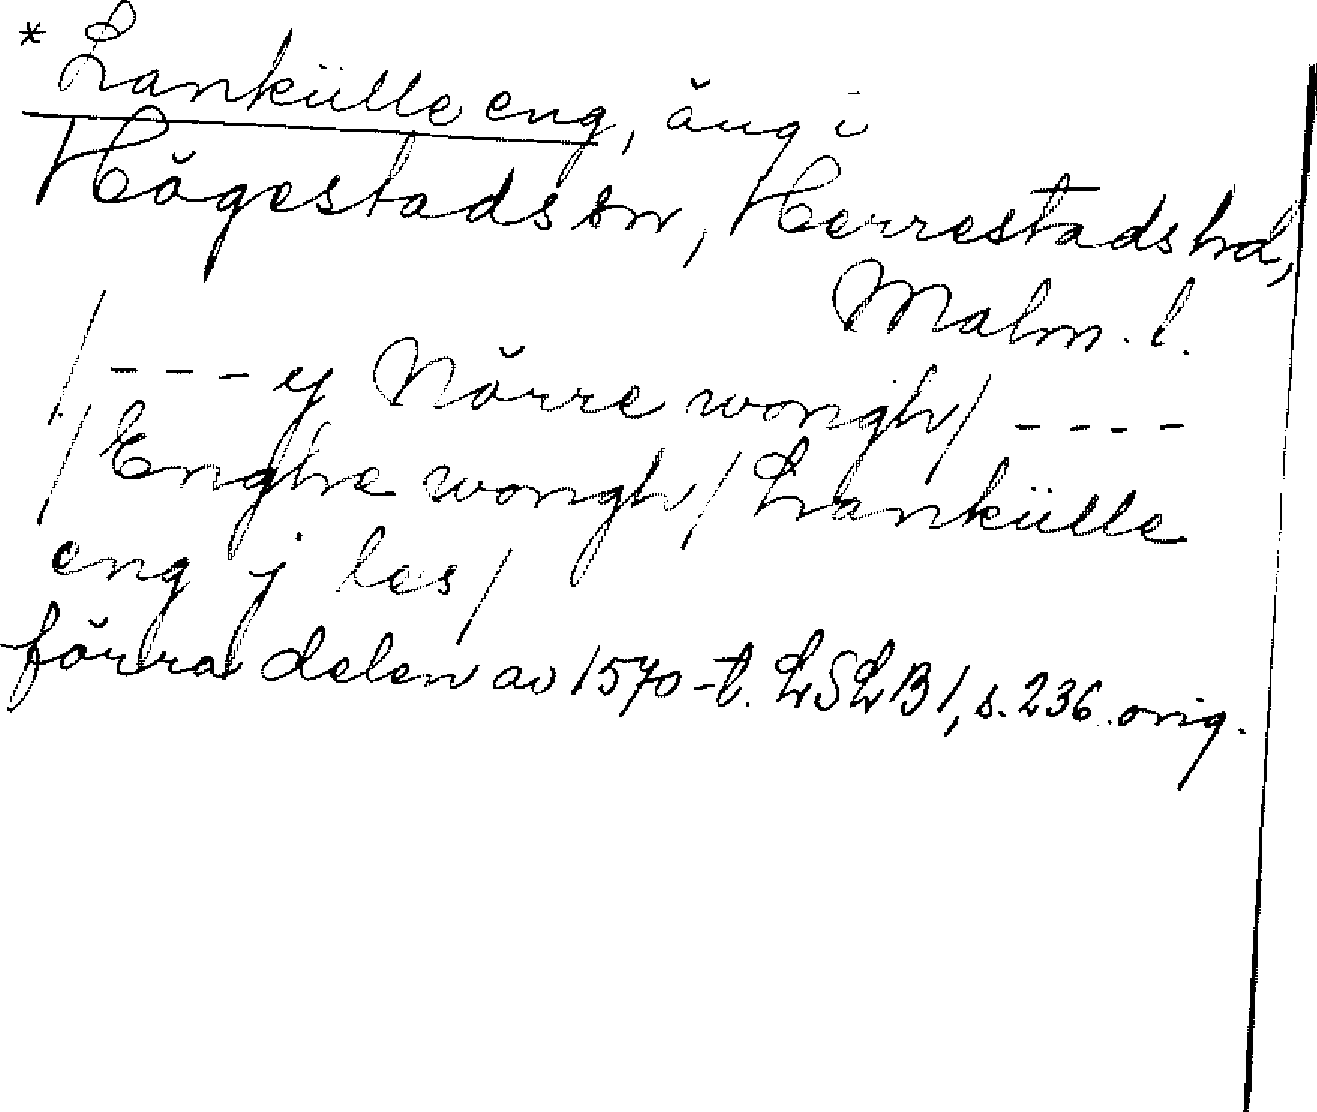 * Lankülle eng, äng i
Högestads sn, Herrestads hd,
Malm. l.
/ - - - y Nörre wongh / - - - -
/ Enghe wongh / Lankülle
eng j les /
förra delen av 1570-t. LSLB 1, s. 236. orig.